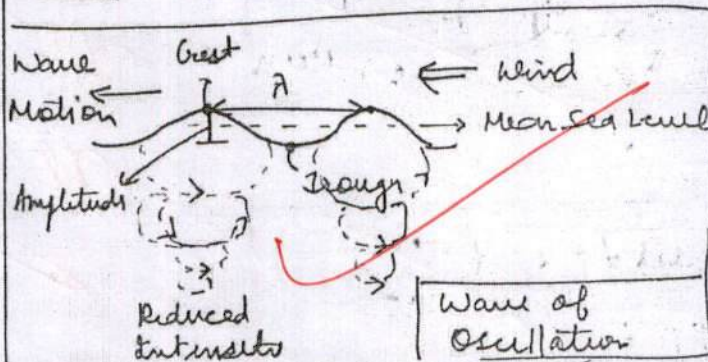 Wave
Motion
Crest
λ
Wind
Mean Sea Level
Amplitude
Trough
Reduced
Intensity
Wave of
Oscillation